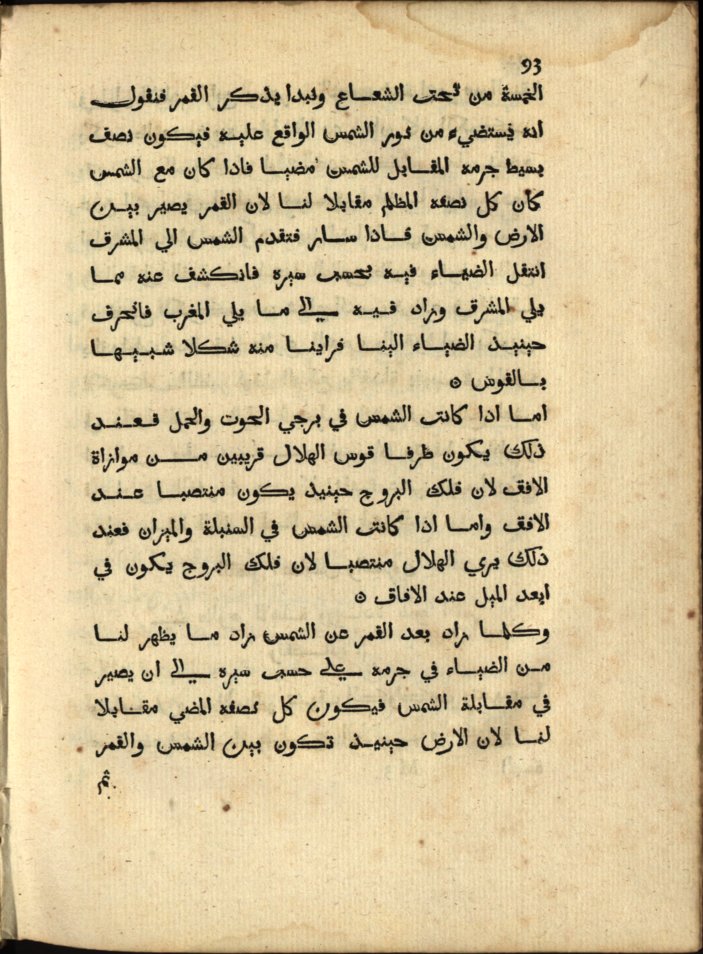 93
الخمسة من تحت الشعاع ونبدا بذكر القمر فنقول
انه يستضيء من نور الشمس الواقع عليه فيكون نصف
بسيط جرمه المقابل للشمس مضيا فاذا كان مع الشمس
كان كل نصفه المظلم مقابلا لنا لان القمر يصير بين
الارض والشمس فاذا سار فتقدم الشمس الي المشرق
انتقل الضياء فيه بحسب سيره فانكشف عنه مما
يلي المشرق وزاد فيه الي ما يلي المغرب فانحرف
حينيذ الضياء الينا فراينا منه شكلا شبيها
بالقوس ٥
اما اذا كانت الشمس في برجي الحوت والحمل فعند
ذلك يكون طرفا قوس الهلال قريبين من موازاة
الافق لان فلك البروج حينيذ يكون منتصبا عند
الافق واما اذا كانت الشمس في السنبلة والميزان فعند
ذلك يري الهلال منتصبا لان فلك البروج يكون في
ابعد الميل عند الافاق ٥
وكلما زاد بعد القمر عن الشمس زاد ما يظهر لنا
من الضياء في جرمه علي حسب سيره الي ان يصير
في مقابلة الشمس فيكون كل نصفه المضي مقابلا
لنا لان الارض حينيذ تكون بين الشمس والقمر
ثم